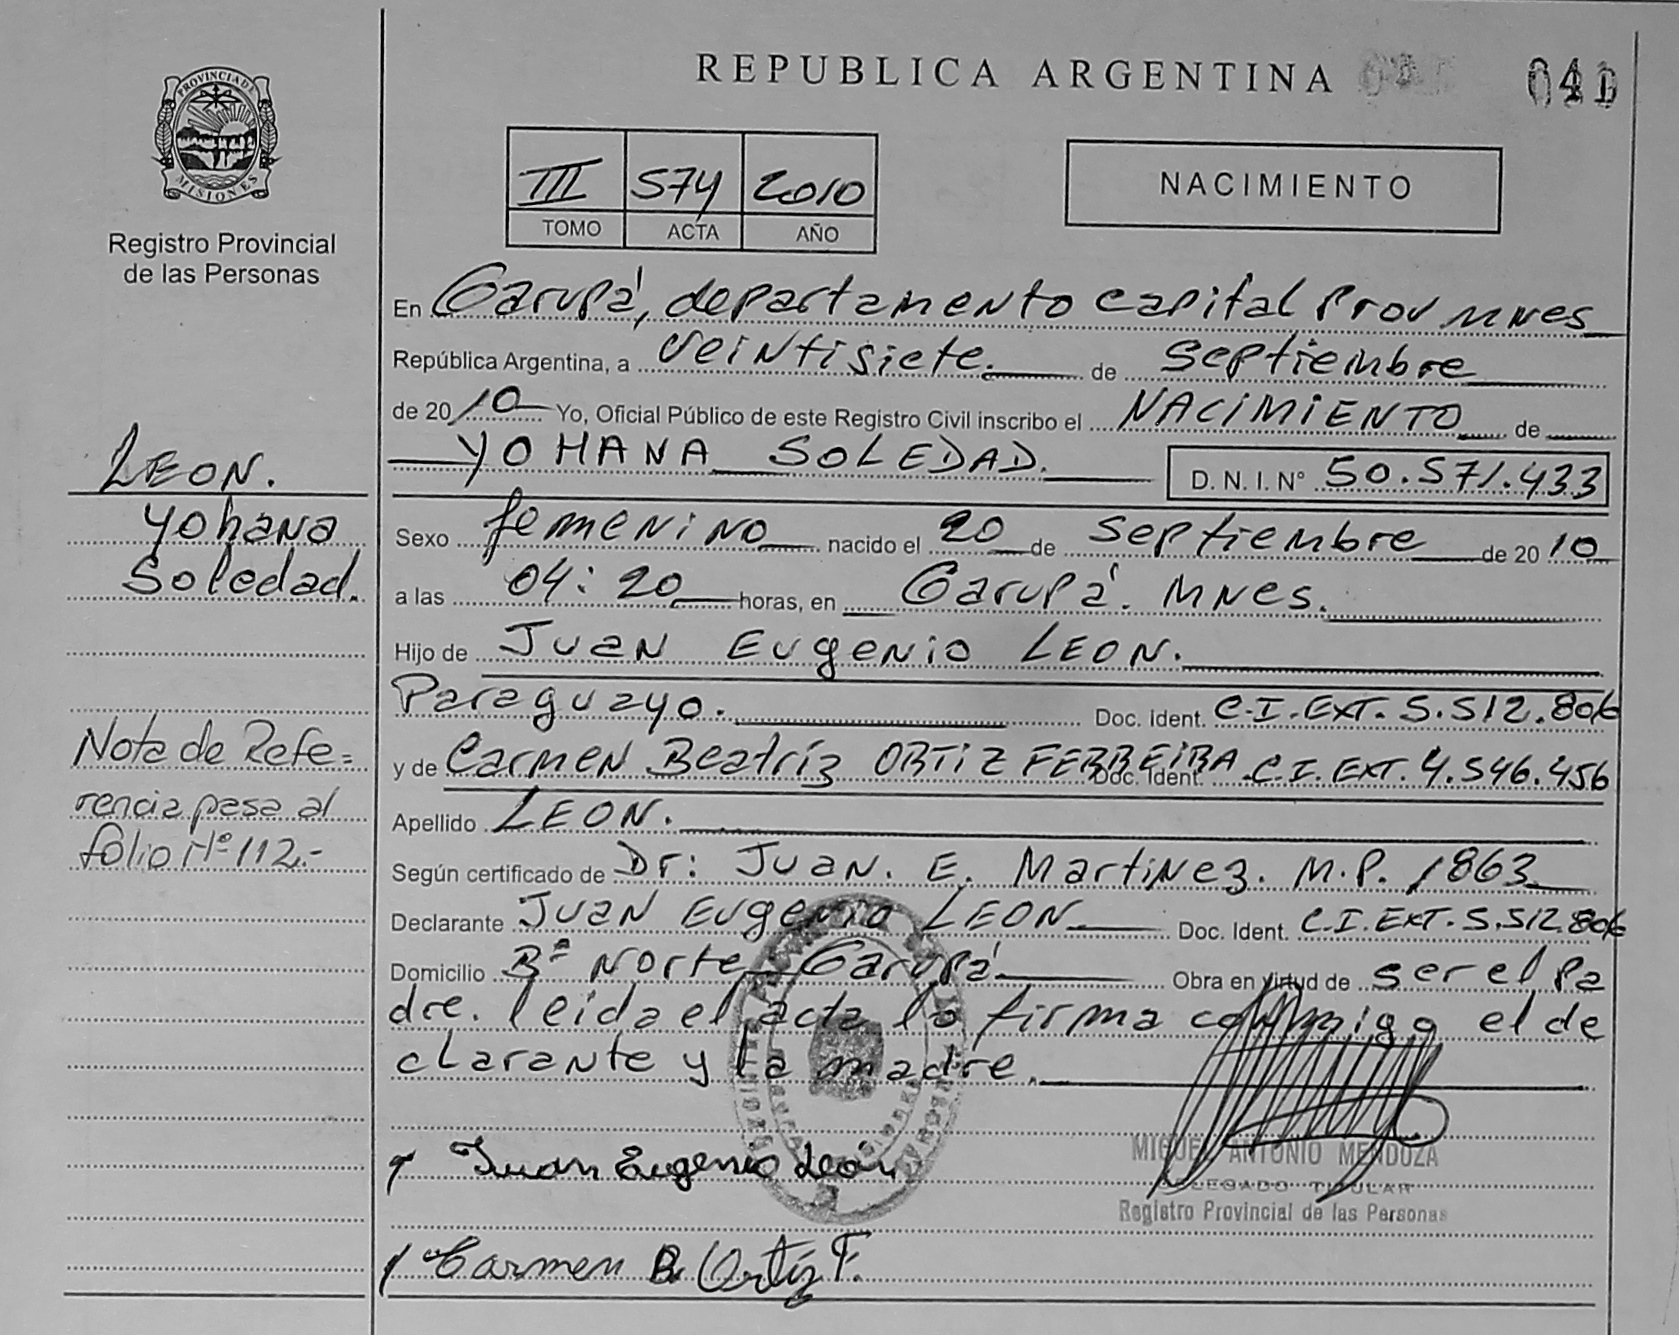 REPUBLICA ARGENTINA
PROVINCIA DE
MISIONES
Registro Provincial
de las Personas
III 574 2010
TOMO ACTA AÑO
NACIMIENTO
En Garupá, departamento capital Prov Mnes
República Argentina, a veintisiete de septiembre
de 2010 Yo, Oficial Público de este Registro Civil inscribo el NACIMIENTO de
YOHANA SOLEDAD. D. N. I. N° 50.571.433
LEON.
Yohana
Soledad.
Sexo femenino nacido el 20 de septiembre de 2010
a las 04:20 horas, en Garupá. Mnes.
Hijo de Juan Eugenio LEON.
Paraguayo. Doc. Ident. C.I.EXT. 5.512.806
y de Carmen Beatríz ORTIZ FERREIRA Doc. Ident. C.I.EXT. 4.546.456
Apellido LEON.
Nota de Refe=
rencia pasa al
folio Nº 112.-
Según certificado de Dr: Juan. E. Martinez. M.P. 1863
Declarante Juan Eugenio LEON Doc. Ident. C.I.EXT. 5.512.806
Domicilio Bº Norte Garupá Obra en virtud de ser el Pa
dre. leida el acta la firma conmigo el de
clarante y la madre.
Juan Eugenio León
MIGUEL ANTONIO MENDOZA
DELEGADO TITULAR
Registro Provincial de las Personas
Carmen B. Ortíz F.